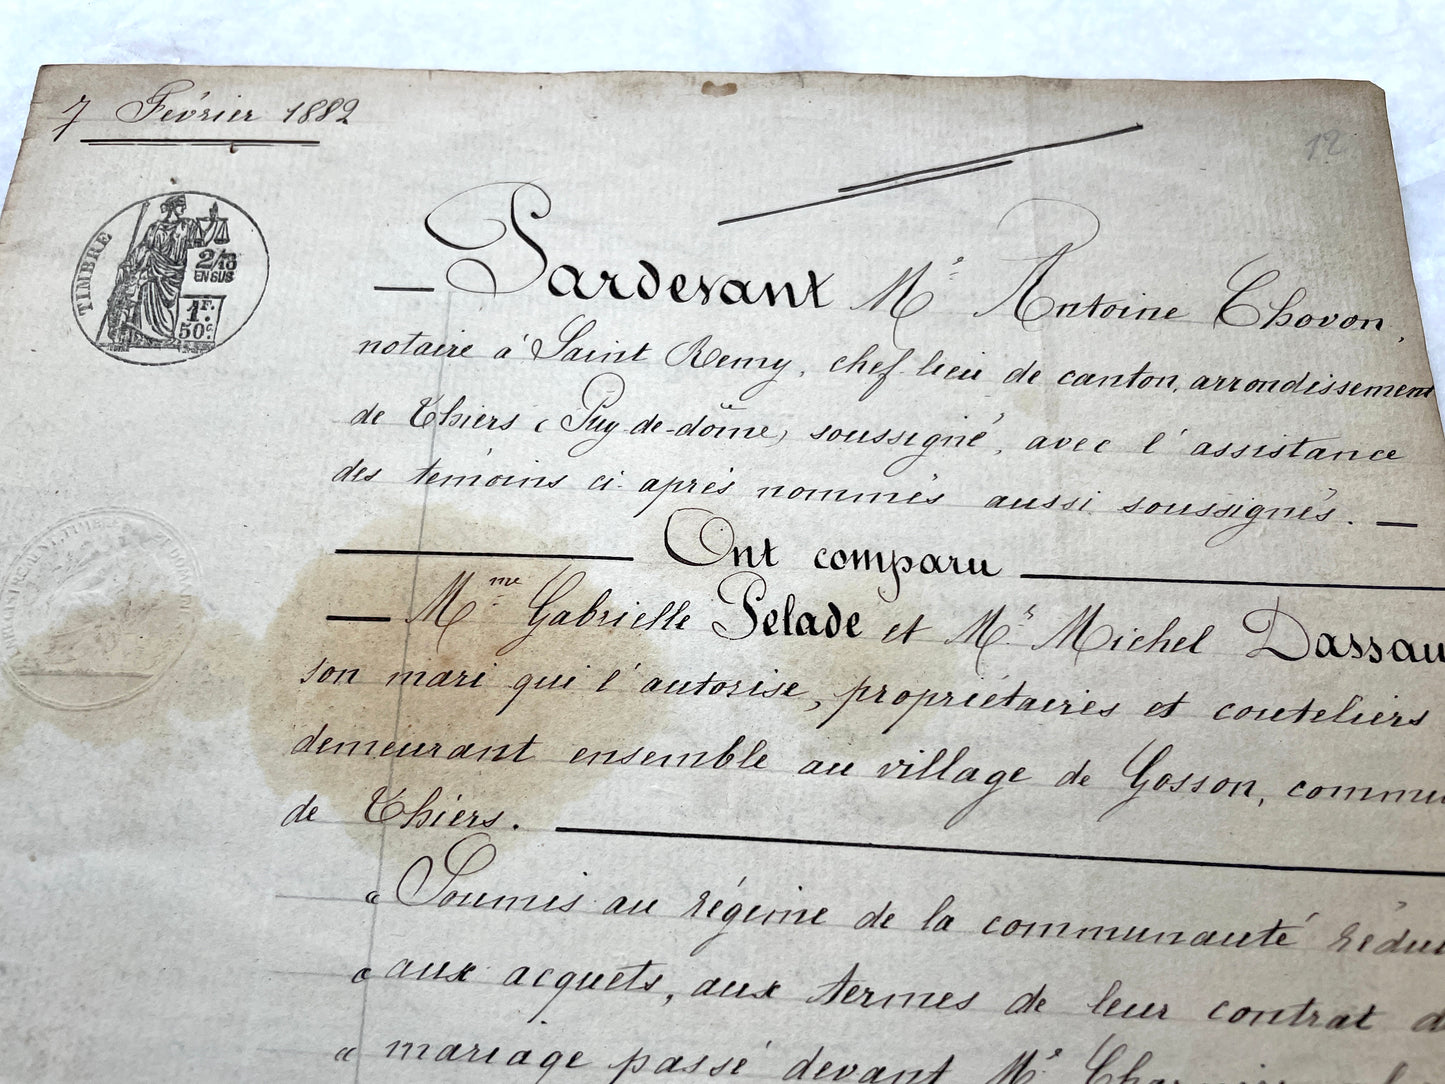 7 Février 1882
12
TIMBRE
2/10
EN SUS
1F.
50c.
Pardevant Me Antoine Chovon,
notaire à Saint Remy, chef-lieu de canton, arrondissement
de Thiers (Puy-de-dôme) soussigné, avec l'assistance
des témoins ci-après nommés aussi soussignés. —
Ont comparu
— Mme Gabrielle Pelade et Mr Michel Dassau
son mari qui l'autorise, propriétaires et couteliers
demeurant ensemble au village de Gosson, commu
de Thiers.
« Soumis au régime de la communauté rédui
« aux acquets, aux termes de leur contrat d
« mariage passé devant Me